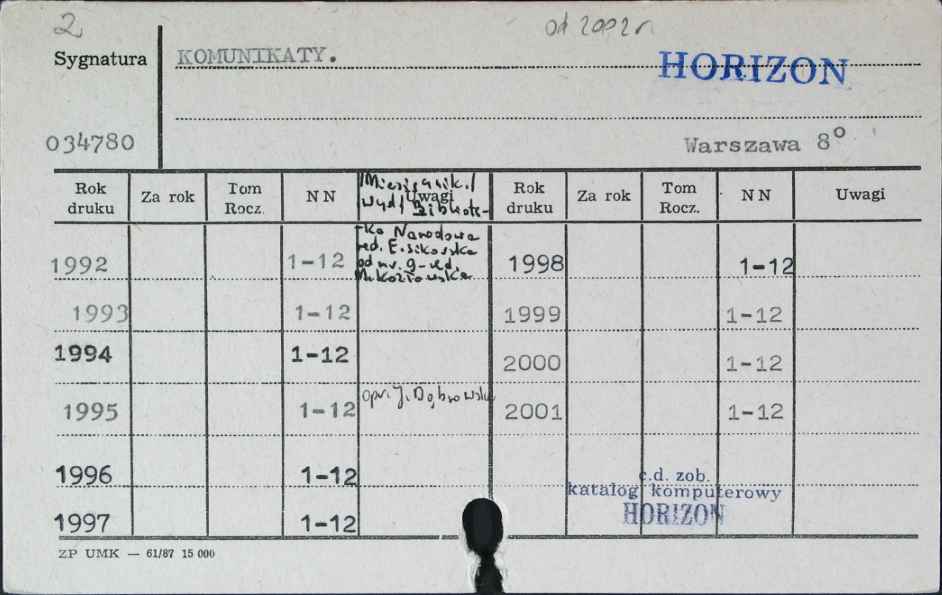 2
od 2002 r.
Sygnatura
KOMUNIKATY.
HORIZON
034780
Warszawa 8°
Rok druku Za rok Tom Rocz. N N Uwagi Rok druku Za rok Tom Rocz. N N Uwagi
/Miesięcznik./
wyd. Bibliote-
-ka Narodowa
red. E. Sikorska
od nr. 9-red.
M. Kozłowska
1992 1-12 1998 1-12
1993 1-12 1999 1-12
1994 1-12 2000 1-12
1995 1-12 opr. J. Dąbrowska 2001 1-12
1996 1-12
1997 1-12
c.d. zob.
katalog komputerowy
HORIZON
ZP UMK — 61/87 15 000